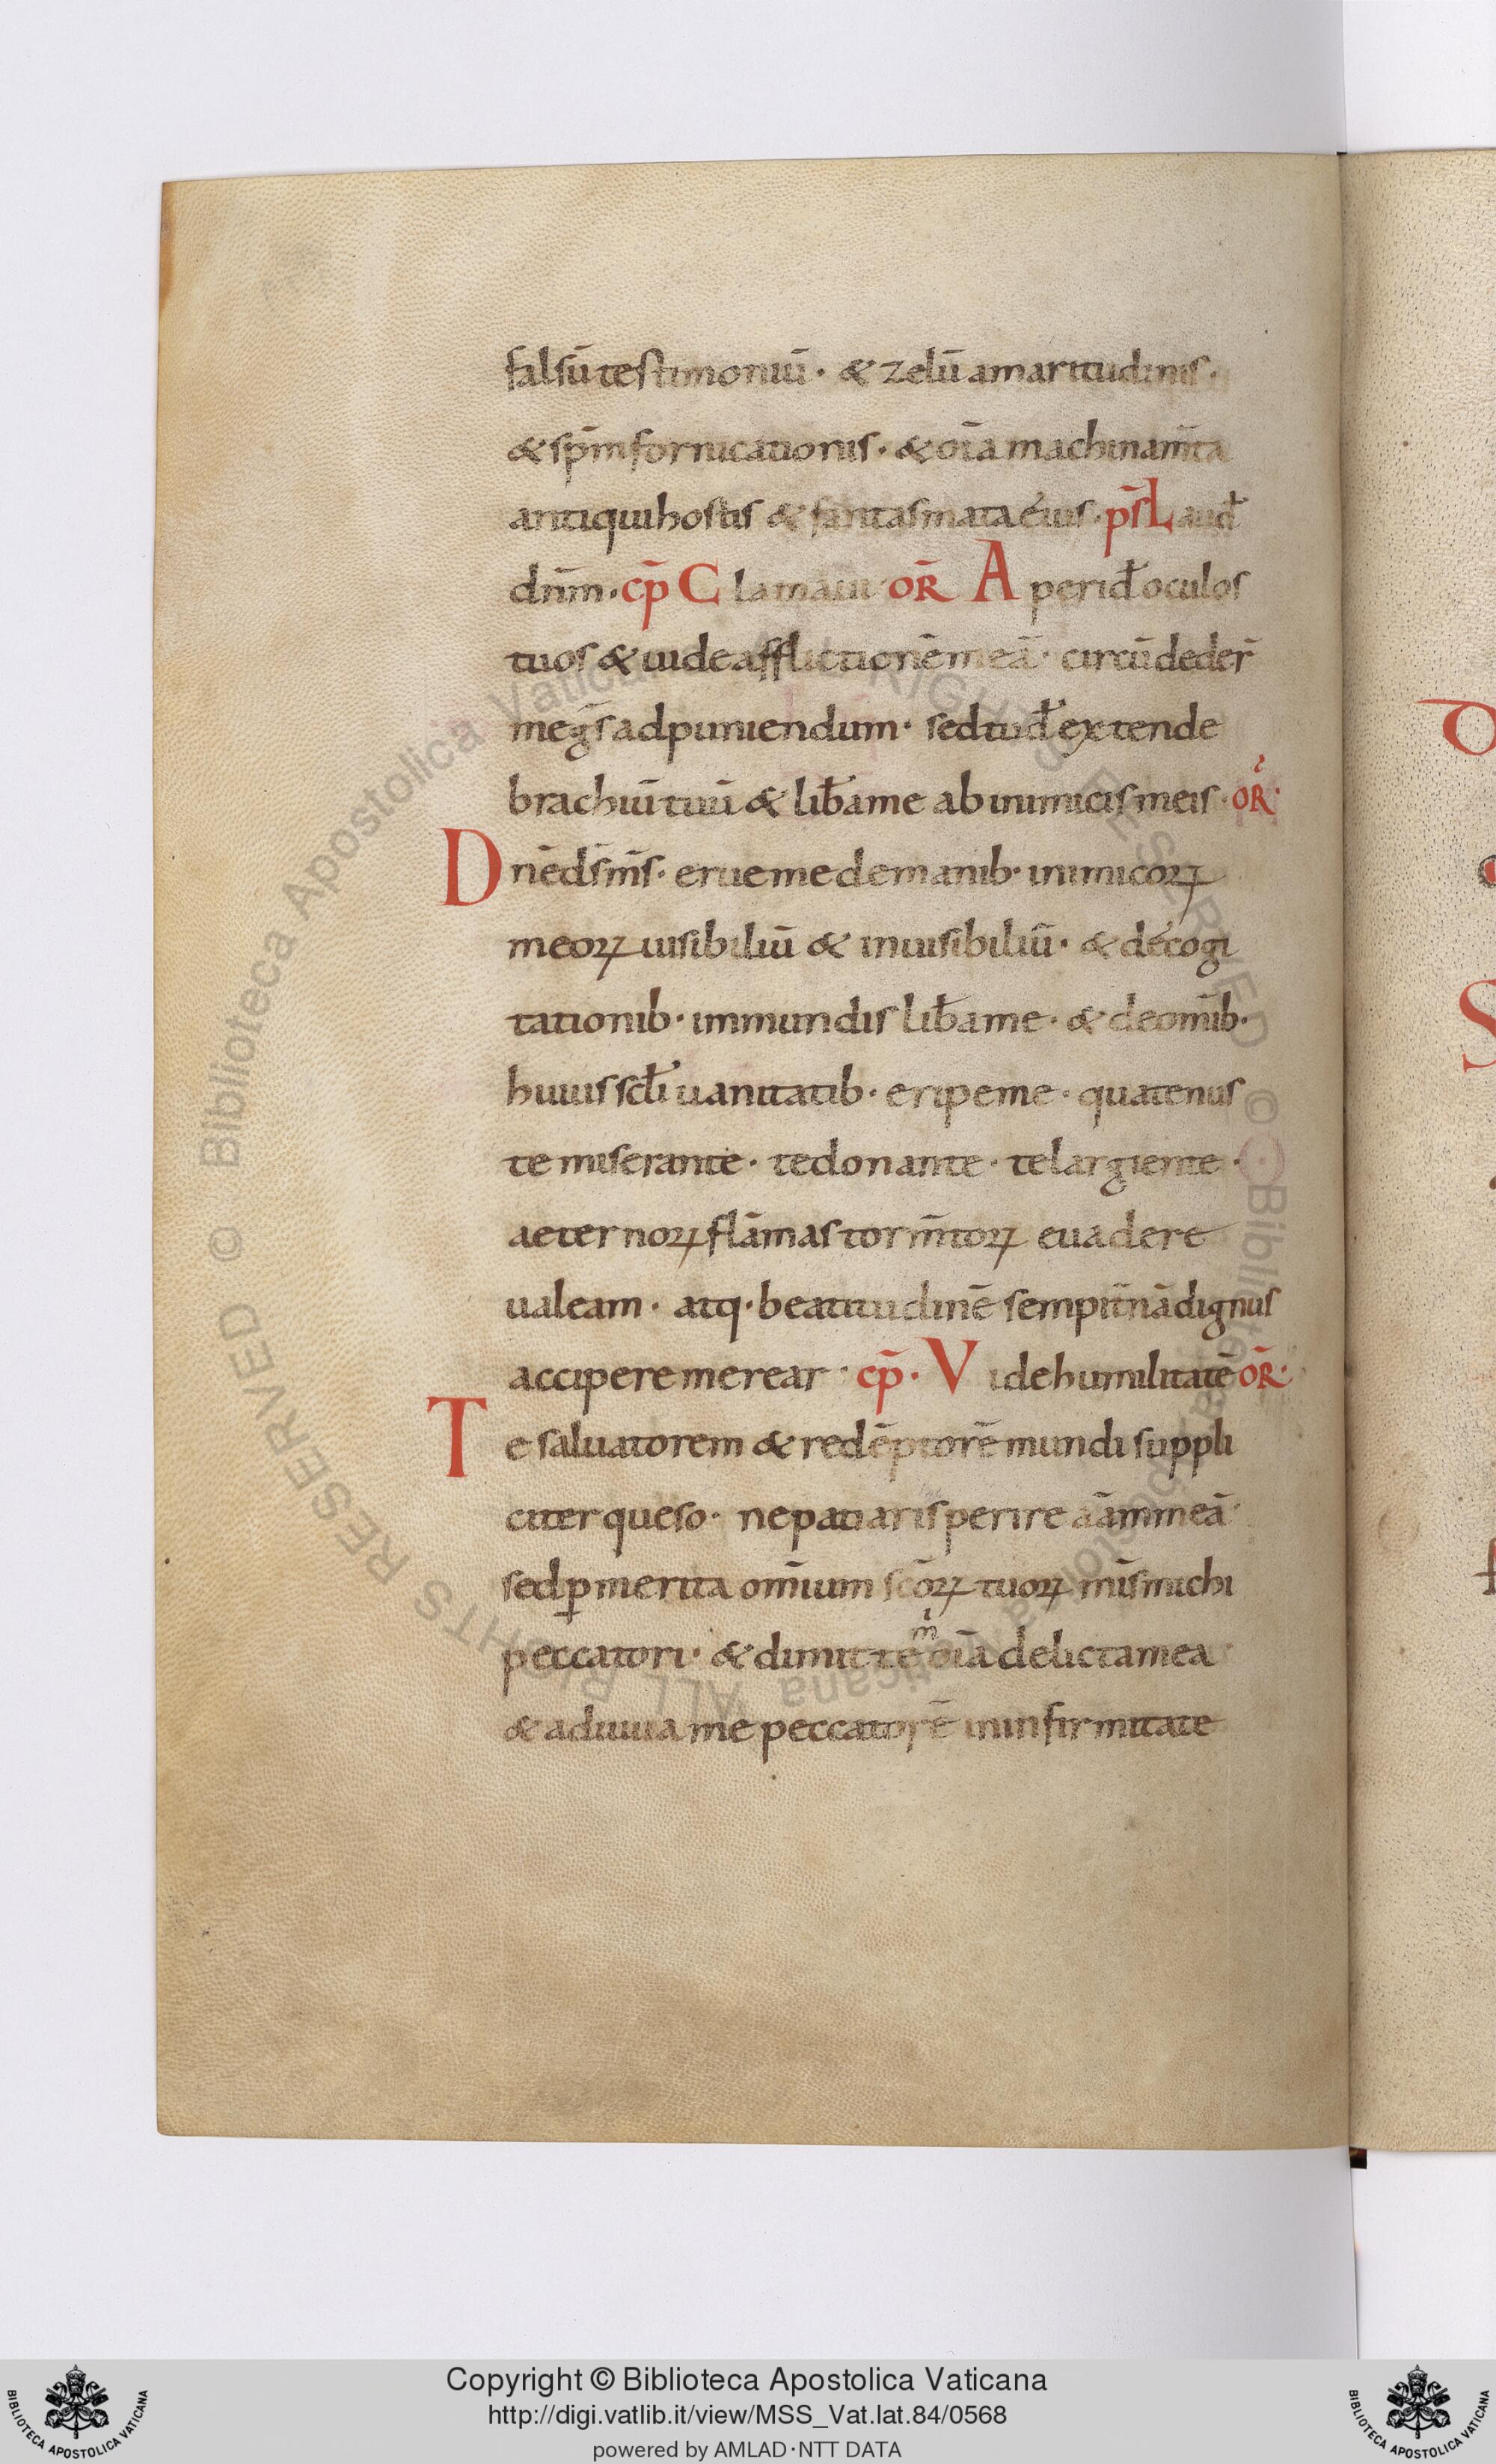 falsū testimoniū· & zelū amaritudinis·
& sp̄m fornicationis· & oīa machinam̄ta
antiqui hostis & fantasmata eius· ps̄ Laud̄
dn̄m· cp̄ Clamaui or̄ Aperi d̄ oculos
tuos & uide afflictionē meā· circūdeder̄
me gs̄ ad puniendum· sed tu d̄ extende
brachiū tuū & lib̄a me ab inimicis meis· or̄·
Dnē ds̄ ms̄· erue me de manib· inimicoꝝ
meoꝝ uisibiliū & inuisibiliū· & de cogi
tationib· immundis lib̄a me· & de om̄ib·
huius scl̄i uanitatib· eripe me· quatenus
te miserante· te donante· te largiente·
aeternoꝝ flāmas torm̄toꝝ euadere
ualeam· atq· beatitudinē sempit̄nā dignus
accipere merear· cp̄· Vide humilitatē or̄·
Te saluatorem & redēptorē mundi suppli
citer queso· ne patiaris perire aām meā·
sed ꝑ merita om̄ium sc̄oꝝ tuoꝝ mīs michi
peccatori· & dimitte m̍ oīa delicta mea
& adiuua me peccatorē in infirmitate
© Biblioteca Apostolica Vaticana ALL RIGHTS RESERVED
© Biblioteca Apostolica Vaticana ALL RIGHTS RESERVED
Copyright © Biblioteca Apostolica Vaticana
http://digi.vatlib.it/view/MSS_Vat.lat.84/0568
powered by AMLAD·NTT DATA
BIBLIOTECA APOSTOLICA VATICANA
BIBLIOTECA APOSTOLICA VATICANA